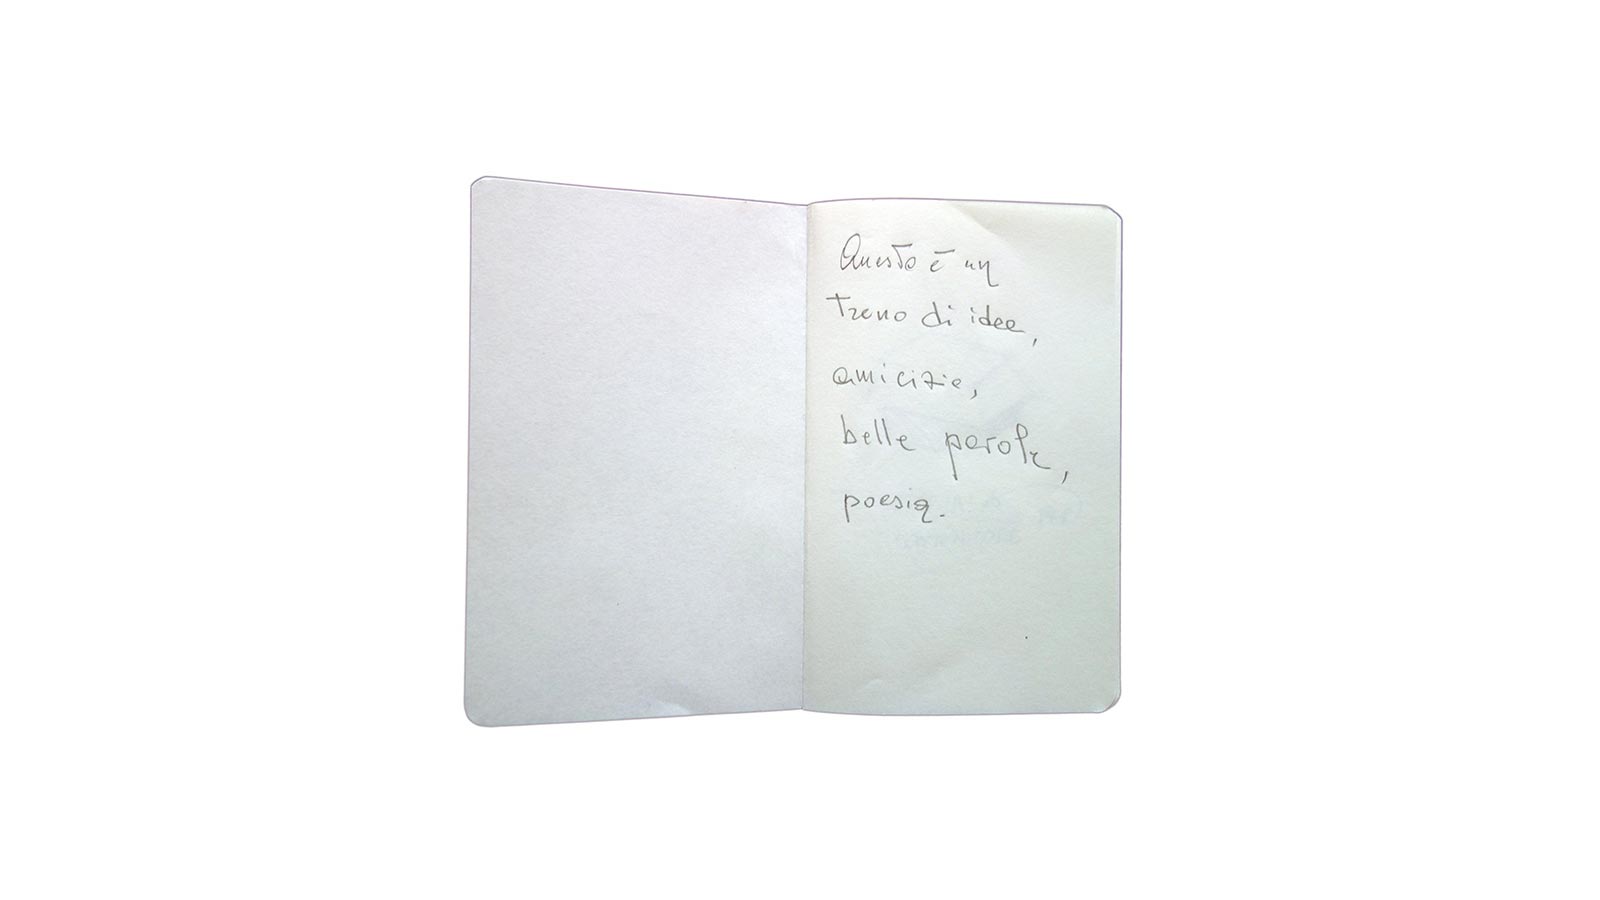 Questo è un
treno di idee,
amicizie,
belle parole,
poesia.